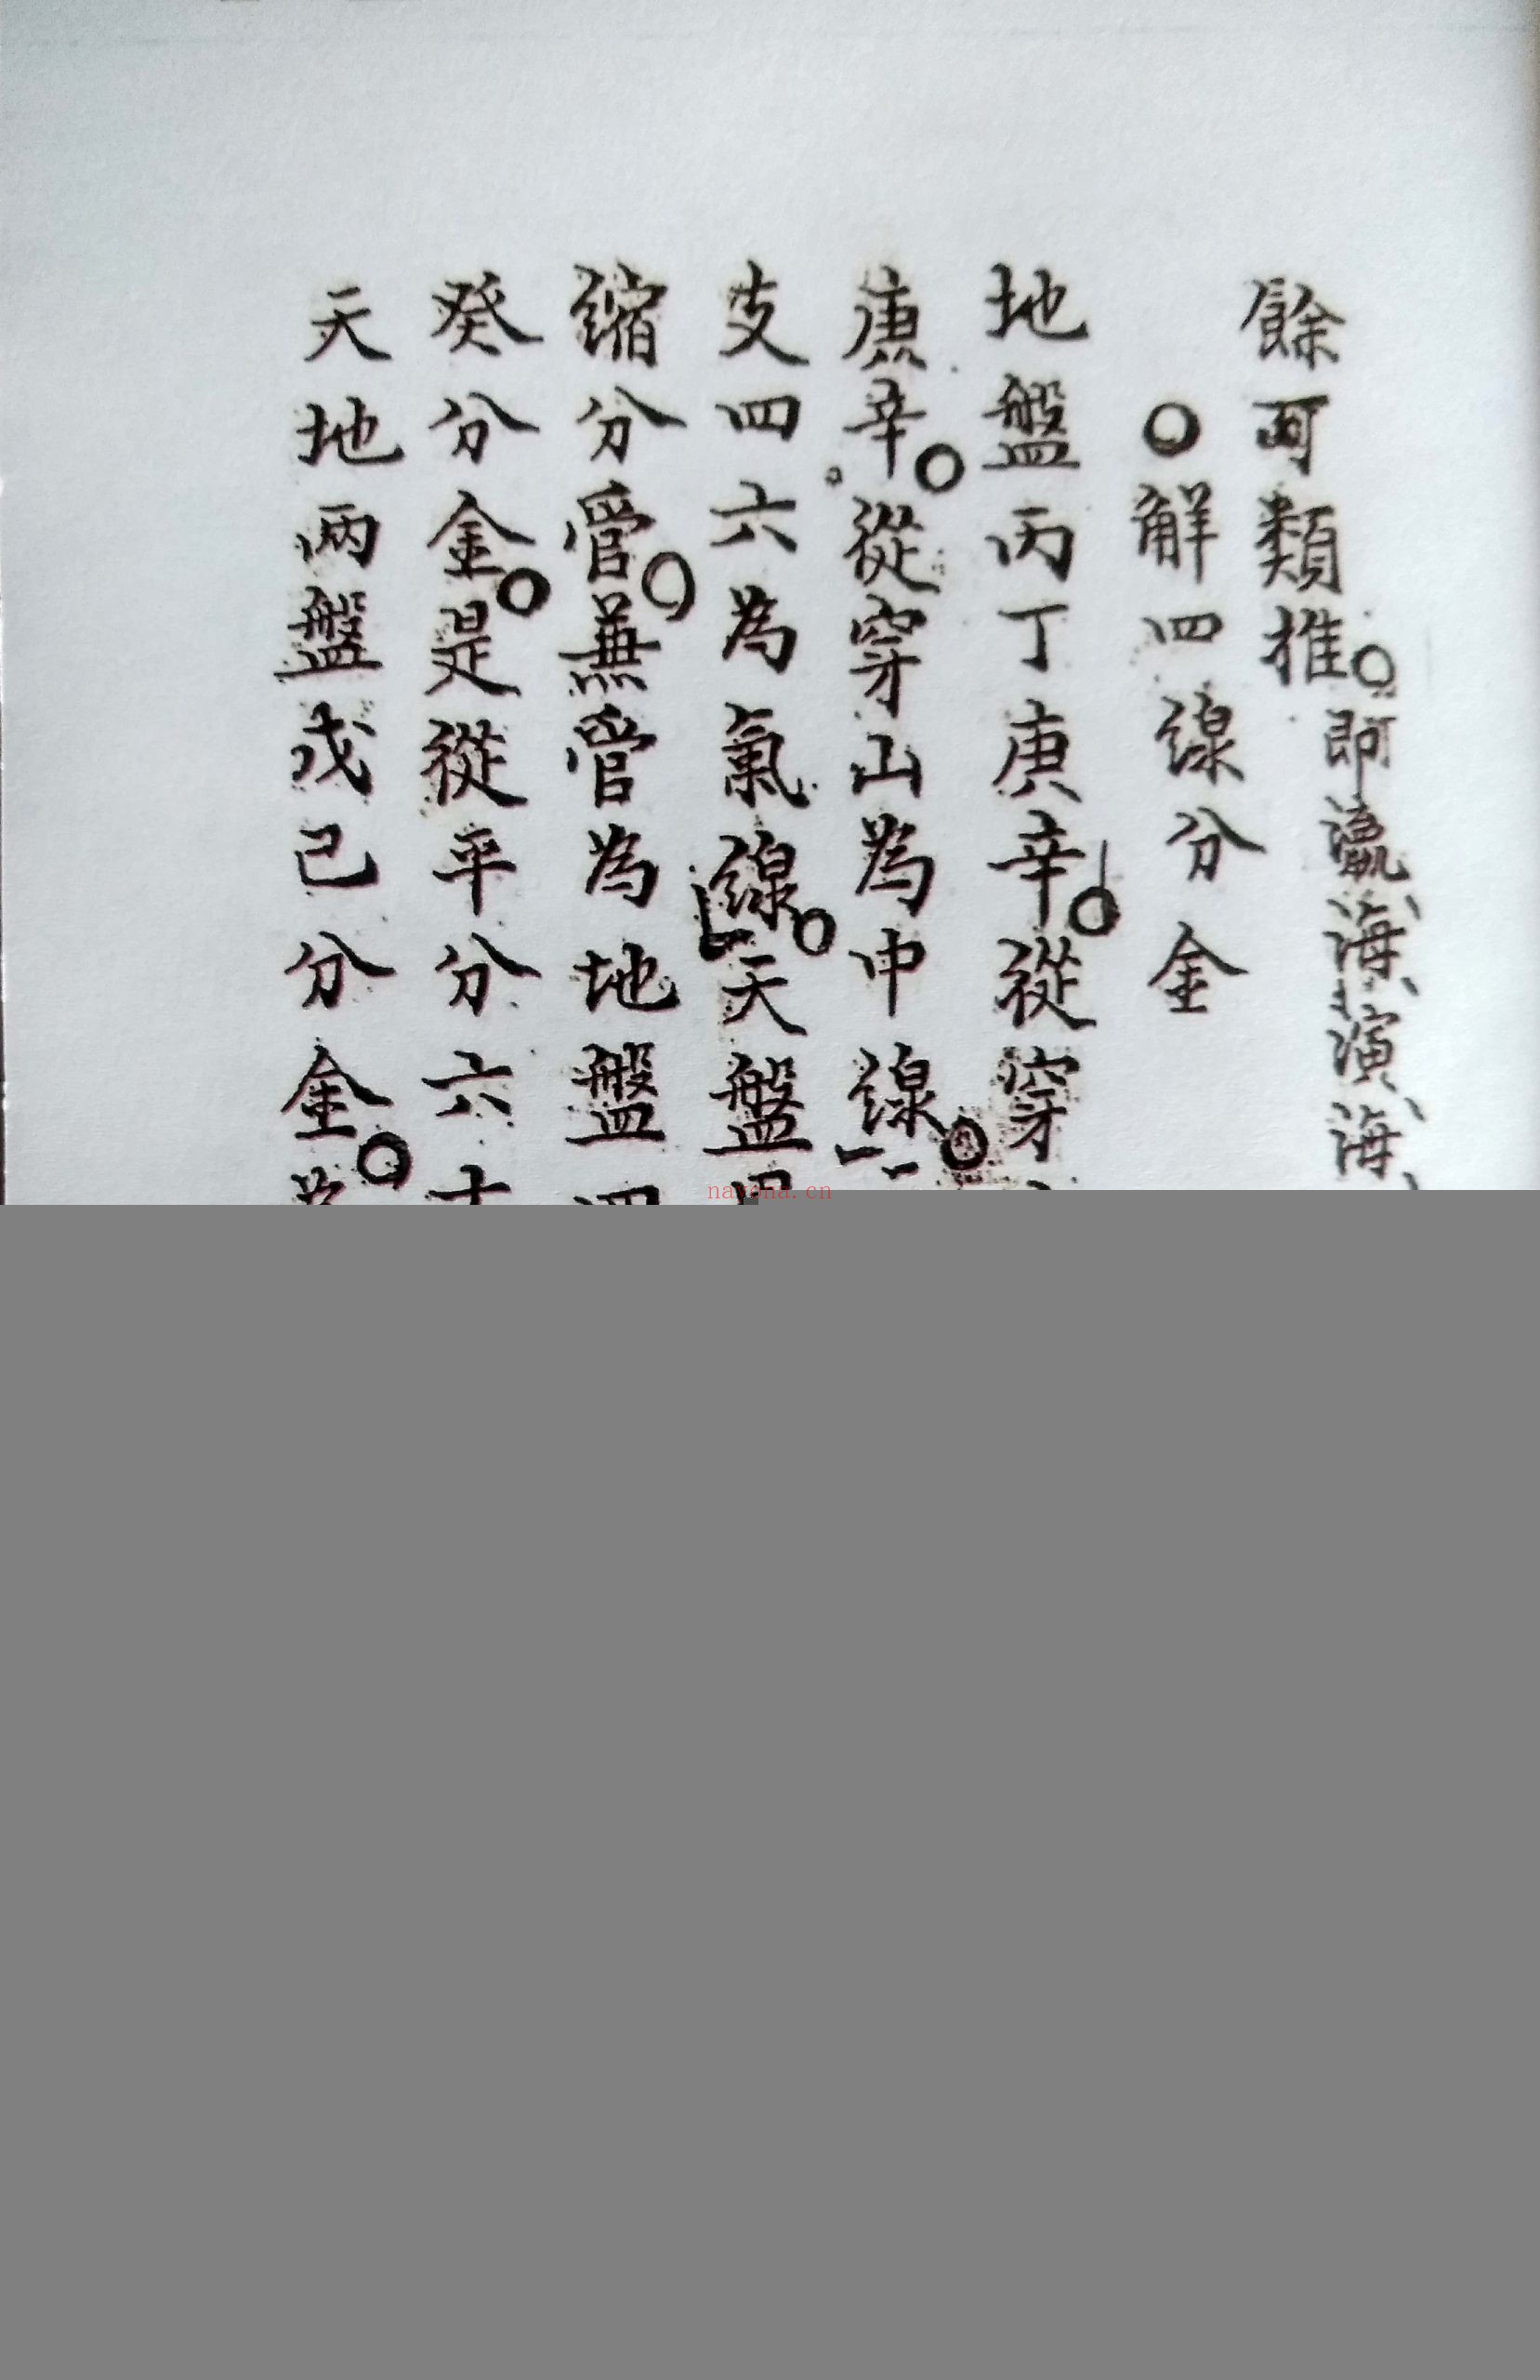 餘可類推○即瀛海演海
○解四線分金
地盤丙丁庚辛○從穿
庚辛○從穿山為中線○
支四六為氣線○天盤
縮分管○無管為地盤四
癸分金○是從平分六十
天地兩盤戊己分金○
nayona.cn